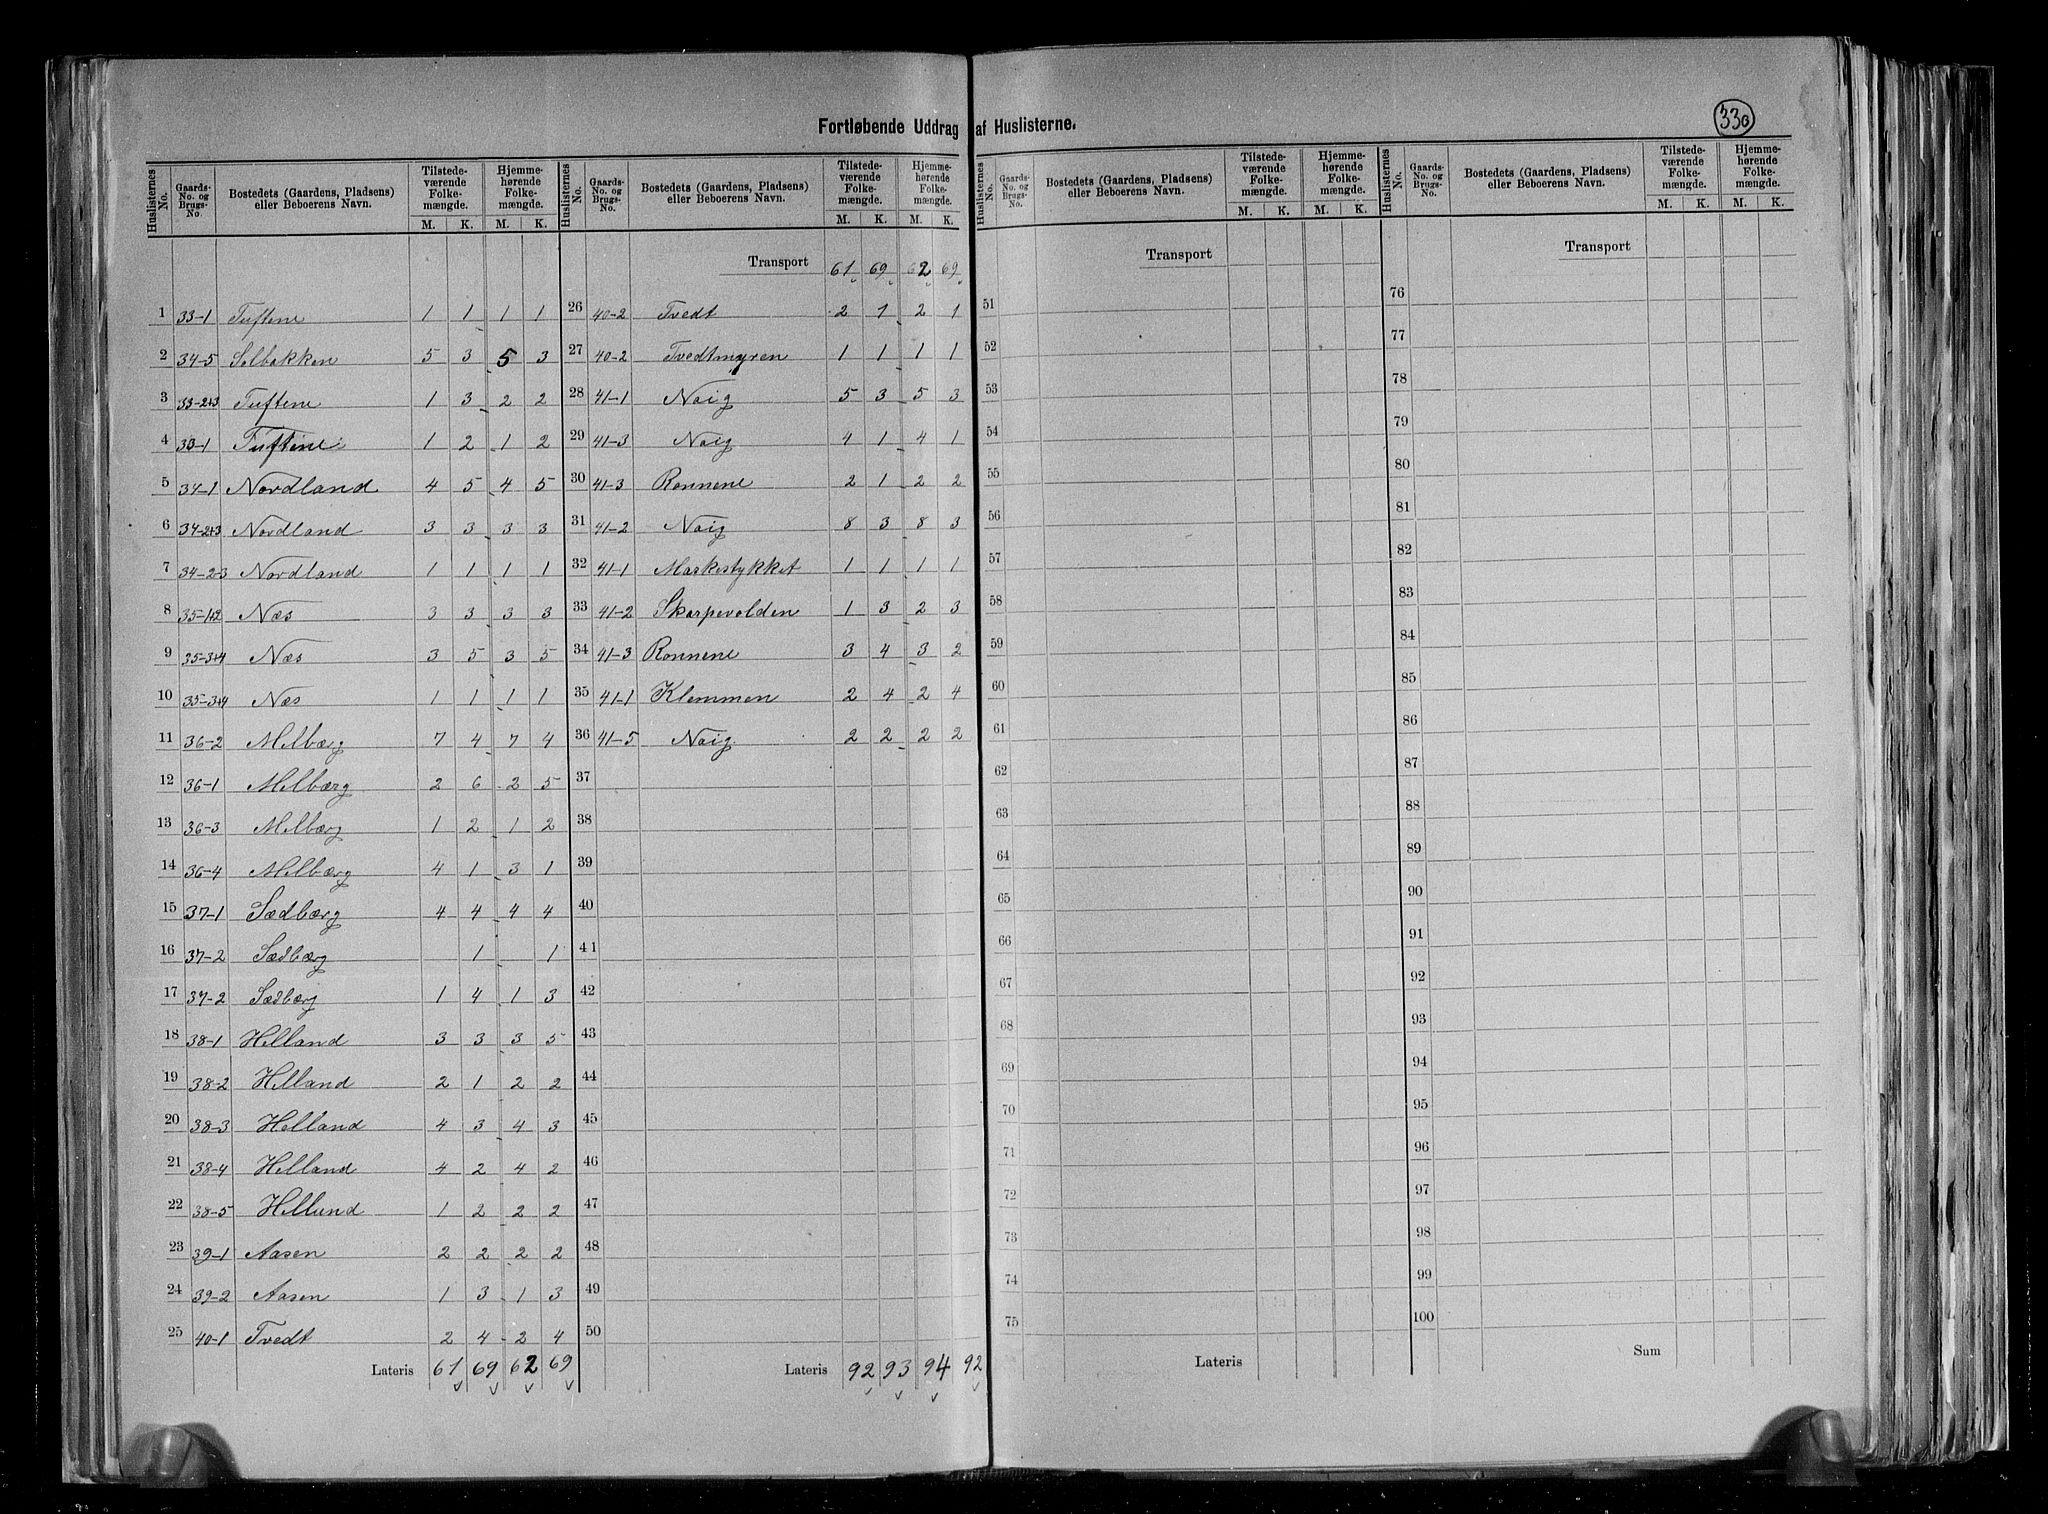 330
Fortløbende Uddrag af Huslisterne.
Huslisternes No. | Gaards-No. og Brugs-No. | Bostedets (Gaardens, Pladsens) eller Beboerens Navn. | Tilstedeværende Folkemængde. M. K. | Hjemmehørende Folkemængde. M. K.
1 33-1 Tuftene 1 1 1 1
2 34-5 Solbakken 5 3 5 3
3 33-2+3 Tuftene 1 3 2 2
4 33-1 Tuftene 1 2 1 2
5 34-1 Nordland 4 5 4 5
6 34-2+3 Nordland 3 3 3 3
7 34-2-3 Nordland 1 1 1 1
8 35-1+2 Næs 3 3 3 3
9 35-3+4 Næs 3 5 3 5
10 35-3+4 Næs 1 1 1 1
11 36-2 Melbærg 7 4 7 4
12 36-1 Melbærg 2 6 2 5
13 36-3 Melbærg 1 2 1 2
14 36-4 Melbærg 4 1 3 1
15 37-1 Sædbærg 4 4 4 4
16 37-2 Sædbærg 1 1
17 37-2 Sædbærg 1 4 1 3
18 38-1 Helland 3 3 3 5
19 38-2 Helland 2 1 2 2
20 38-3 Helland 4 3 4 3
21 38-4 Helland 4 2 4 2
22 38-5 Helland 1 2 2 2
23 39-1 Aasen 2 2 2 2
24 39-2 Aasen 1 3 1 3
25 40-1 Tvedt 2 4 2 4
Lateris 61 69 62 69
Huslisternes No. | Gaards-No. og Brugs-No. | Bostedets (Gaardens, Pladsens) eller Beboerens Navn. | Tilstedeværende Folkemængde. M. K. | Hjemmehørende Folkemængde. M. K.
Transport 61 69 62 69
26 40-2 Tvedt 2 1 2 1
27 40-2 Tvedtmyren 1 1 1 1
28 41-1 Naig 5 3 5 3
29 41-3 Naig 4 1 4 1
30 41-3 Ronnene 2 1 2 2
31 41-2 Naig 8 3 8 3
32 41-1 Markestykket 1 1 1 1
33 41-2 Skarpevolden 1 3 2 3
34 41-3 Ronnene 3 4 3 2
35 41-1 Klemmen 2 4 2 4
36 41-5 Naig 2 2 2 2
37
38
39
40
41
42
43
44
45
46
47
48
49
50
Lateris 92 93 94 92
Huslisternes No. | Gaards-No. og Brugs-No. | Bostedets (Gaardens, Pladsens) eller Beboerens Navn. | Tilstedeværende Folkemængde. M. K. | Hjemmehørende Folkemængde. M. K.
Transport
51
52
53
54
55
56
57
58
59
60
61
62
63
64
65
66
67
68
69
70
71
72
73
74
75
Lateris
Huslisternes No. | Gaards-No. og Brugs-No. | Bostedets (Gaardens, Pladsens) eller Beboerens Navn. | Tilstedeværende Folkemængde. M. K. | Hjemmehørende Folkemængde. M. K.
Transport
76
77
78
79
80
81
82
83
84
85
86
87
88
89
90
91
92
93
94
95
96
97
98
99
100
Sum